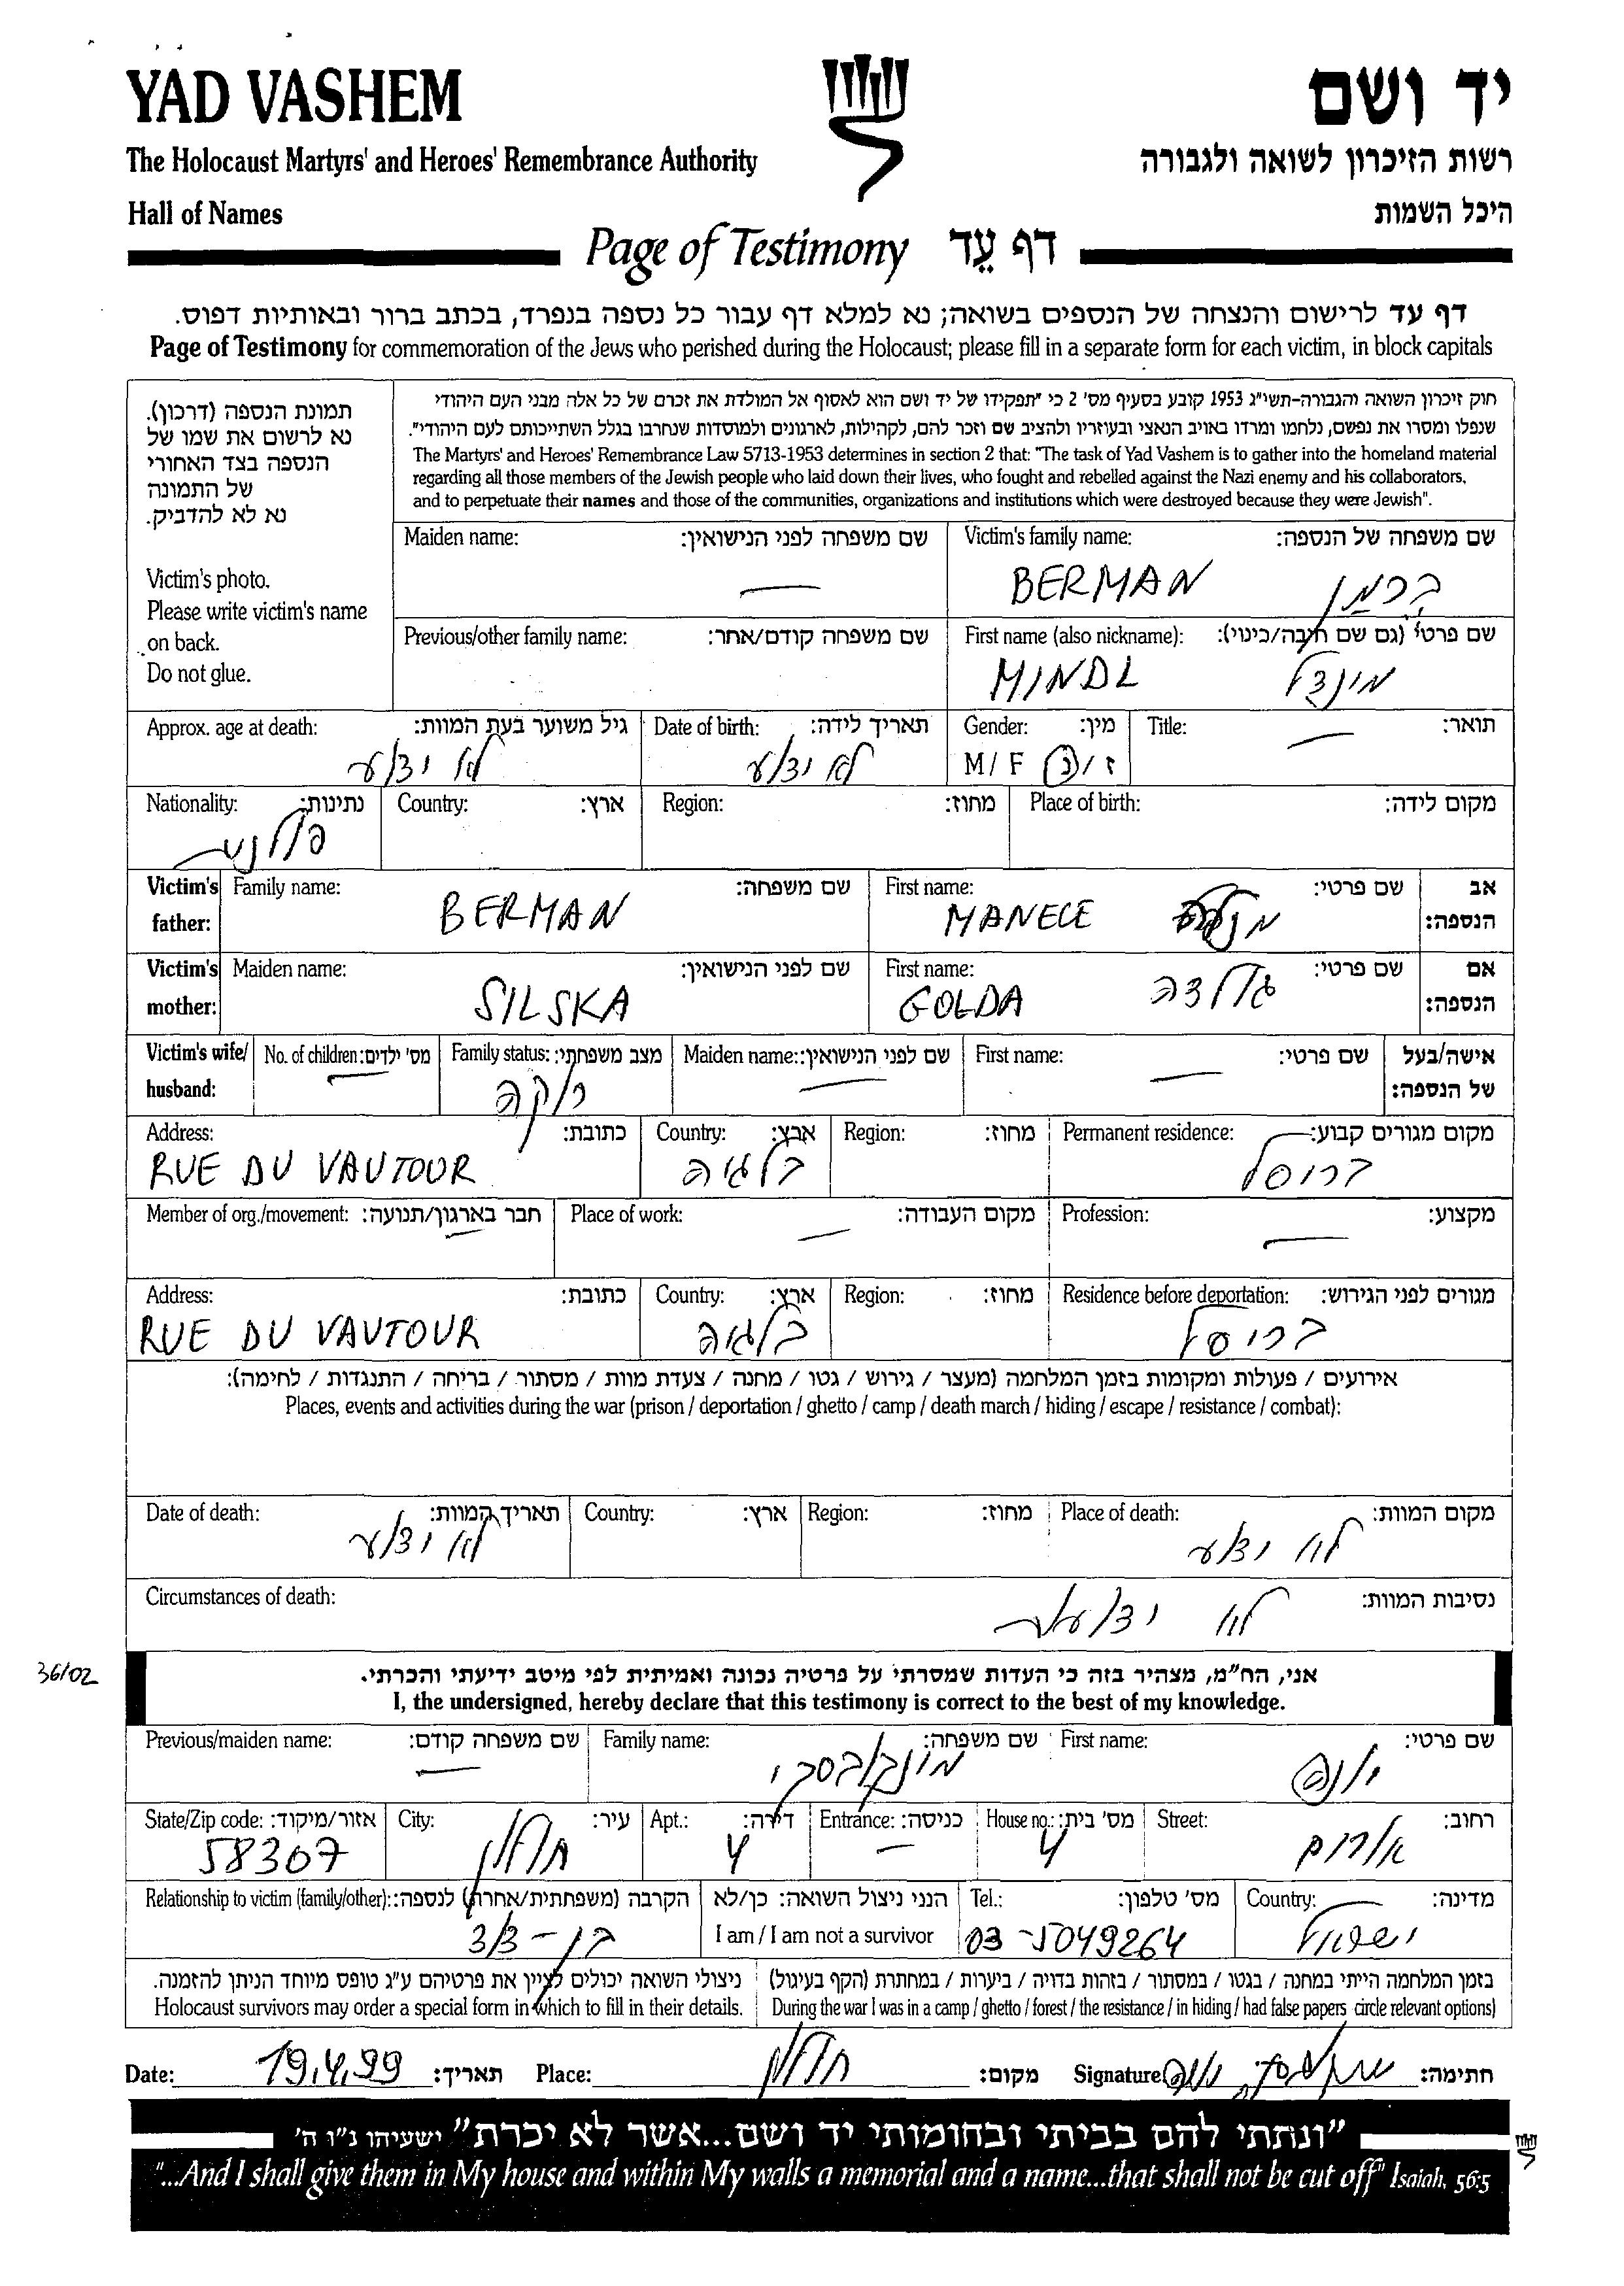 YAD VASHEM
יד ושם
The Holocaust Martyrs' and Heroes' Remembrance Authority
רשות הזיכרון לשואה ולגבורה
Hall of Names
היכל השמות
Page of Testimony דף עֵד
דף עד לרישום והנצחה של הנספים בשואה; נא למלא דף עבור כל נספה בנפרד, בכתב ברור ובאותיות דפוס.
Page of Testimony for commemoration of the Jews who perished during the Holocaust; please fill in a separate form for each victim, in block capitals
תמונת הנספה (דרכון).
נא לרשום את שמו של
הנספה בצד האחורי
של התמונה
נא לא להדביק.
Victim's photo.
Please write victim's name
on back.
Do not glue.
חוק זיכרון השואה והגבורה-תשי"ג 1953 קובע בסעיף מס' 2 כי "תפקידו של יד ושם הוא לאסוף אל המולדת את זכרם של כל אלה מבני העם היהודי
שנפלו ומסרו את נפשם, נלחמו ומרדו באויב הנאצי ובעוזריו ולהציב שם וזכר להם, לקהילות, לארגונים ולמוסדות שנחרבו בגלל השתייכותם לעם היהודי".
The Martyrs' and Heroes' Remembrance Law 5713-1953 determines in section 2 that: "The task of Yad Vashem is to gather into the homeland material
regarding all those members of the Jewish people who laid down their lives, who fought and rebelled against the Nazi enemy and his collaborators,
and to perpetuate their names and those of the communities, organizations and institutions which were destroyed because they were Jewish".
Maiden name: שם משפחה לפני הנישואין: Victim's family name: שם משפחה של הנספה:
— BERMAN ברמן
Previous/other family name: שם משפחה קודם/אחר: First name (also nickname): שם פרטי (גם שם חיבה/כינוי):
MINDL מינדל
Approx. age at death: גיל משוער בעת המוות: Date of birth: תאריך לידה: Gender: מין: Title: תואר:
לא ידוע לא ידוע M / F ז / נ —
Nationality: נתינות: Country: ארץ: Region: מחוז: Place of birth: מקום לידה:
Victim's father: Family name: שם משפחה: First name: שם פרטי: אב הנספה:
BERMAN MANELE
Victim's mother: Maiden name: שם לפני הנישואין: First name: שם פרטי: אם הנספה:
SILSKA GOLDA גולדה
Victim's wife/ husband: No. of children: מס' ילדים: Family status: מצב משפחתי: Maiden name: שם לפני הנישואין: First name: שם פרטי: אישה/בעל של הנספה:
— רווקה — —
Address: כתובת: Country: ארץ: Region: מחוז: Permanent residence: מקום מגורים קבוע:
RUE DU VAUTOUR בלגיה בריסל
Member of org./movement: חבר בארגון/תנועה: Place of work: מקום העבודה: Profession: מקצוע:
— — —
Address: כתובת: Country: ארץ: Region: מחוז: Residence before deportation: מגורים לפני הגירוש:
RUE DU VAUTOUR בלגיה בריסל
אירועים / פעולות ומקומות בזמן המלחמה (מעצר / גירוש / גטו / מחנה / צעדת מוות / מסתור / בריחה / התנגדות / לחימה):
Places, events and activities during the war (prison / deportation / ghetto / camp / death march / hiding / escape / resistance / combat):
Date of death: תאריך המוות: Country: ארץ: Region: מחוז: Place of death: מקום המוות:
לא ידוע לא ידוע
Circumstances of death: נסיבות המוות:
לא
36/02
אני, הח"מ, מצהיר בזה כי העדות שמסרתי על פרטיה נכונה ואמיתית לפי מיטב ידיעתי והכרתי.
I, the undersigned, hereby declare that this testimony is correct to the best of my knowledge.
Previous/maiden name: שם משפחה קודם: Family name: שם משפחה: First name: שם פרטי:
—
State/Zip code: אזור/מיקוד: City: עיר: Apt.: דירה: Entrance: כניסה: House no.: מס' בית: Street: רחוב:
58307 חולון 4 — 4
Relationship to victim (family/other): הקרבה (משפחתית/אחרת) לנספה: הנני ניצול השואה: כן/לא Tel.: מס' טלפון: Country: מדינה:
בן-דוד I am / I am not a survivor 03-5049264 ישראל
ניצולי השואה יכולים לציין את פרטיהם ע"ג טופס מיוחד הניתן להזמנה. בזמן המלחמה הייתי במחנה / בגטו / במסתור / בזהות בדויה / ביערות / במחתרת (הקף בעיגול)
Holocaust survivors may order a special form in which to fill in their details. During the war I was in a camp / ghetto / forest / the resistance / in hiding / had false papers circle relevant options)
Date: 19.4.99 תאריך: Place: חולון מקום: Signature חתימה:
"ונתתי להם בביתי ובחומותי יד ושם...אשר לא יכרת" ישעיהו נ"ו ה'
"...And I shall give them in My house and within My walls a memorial and a name...that shall not be cut off" Isaiah, 56:5